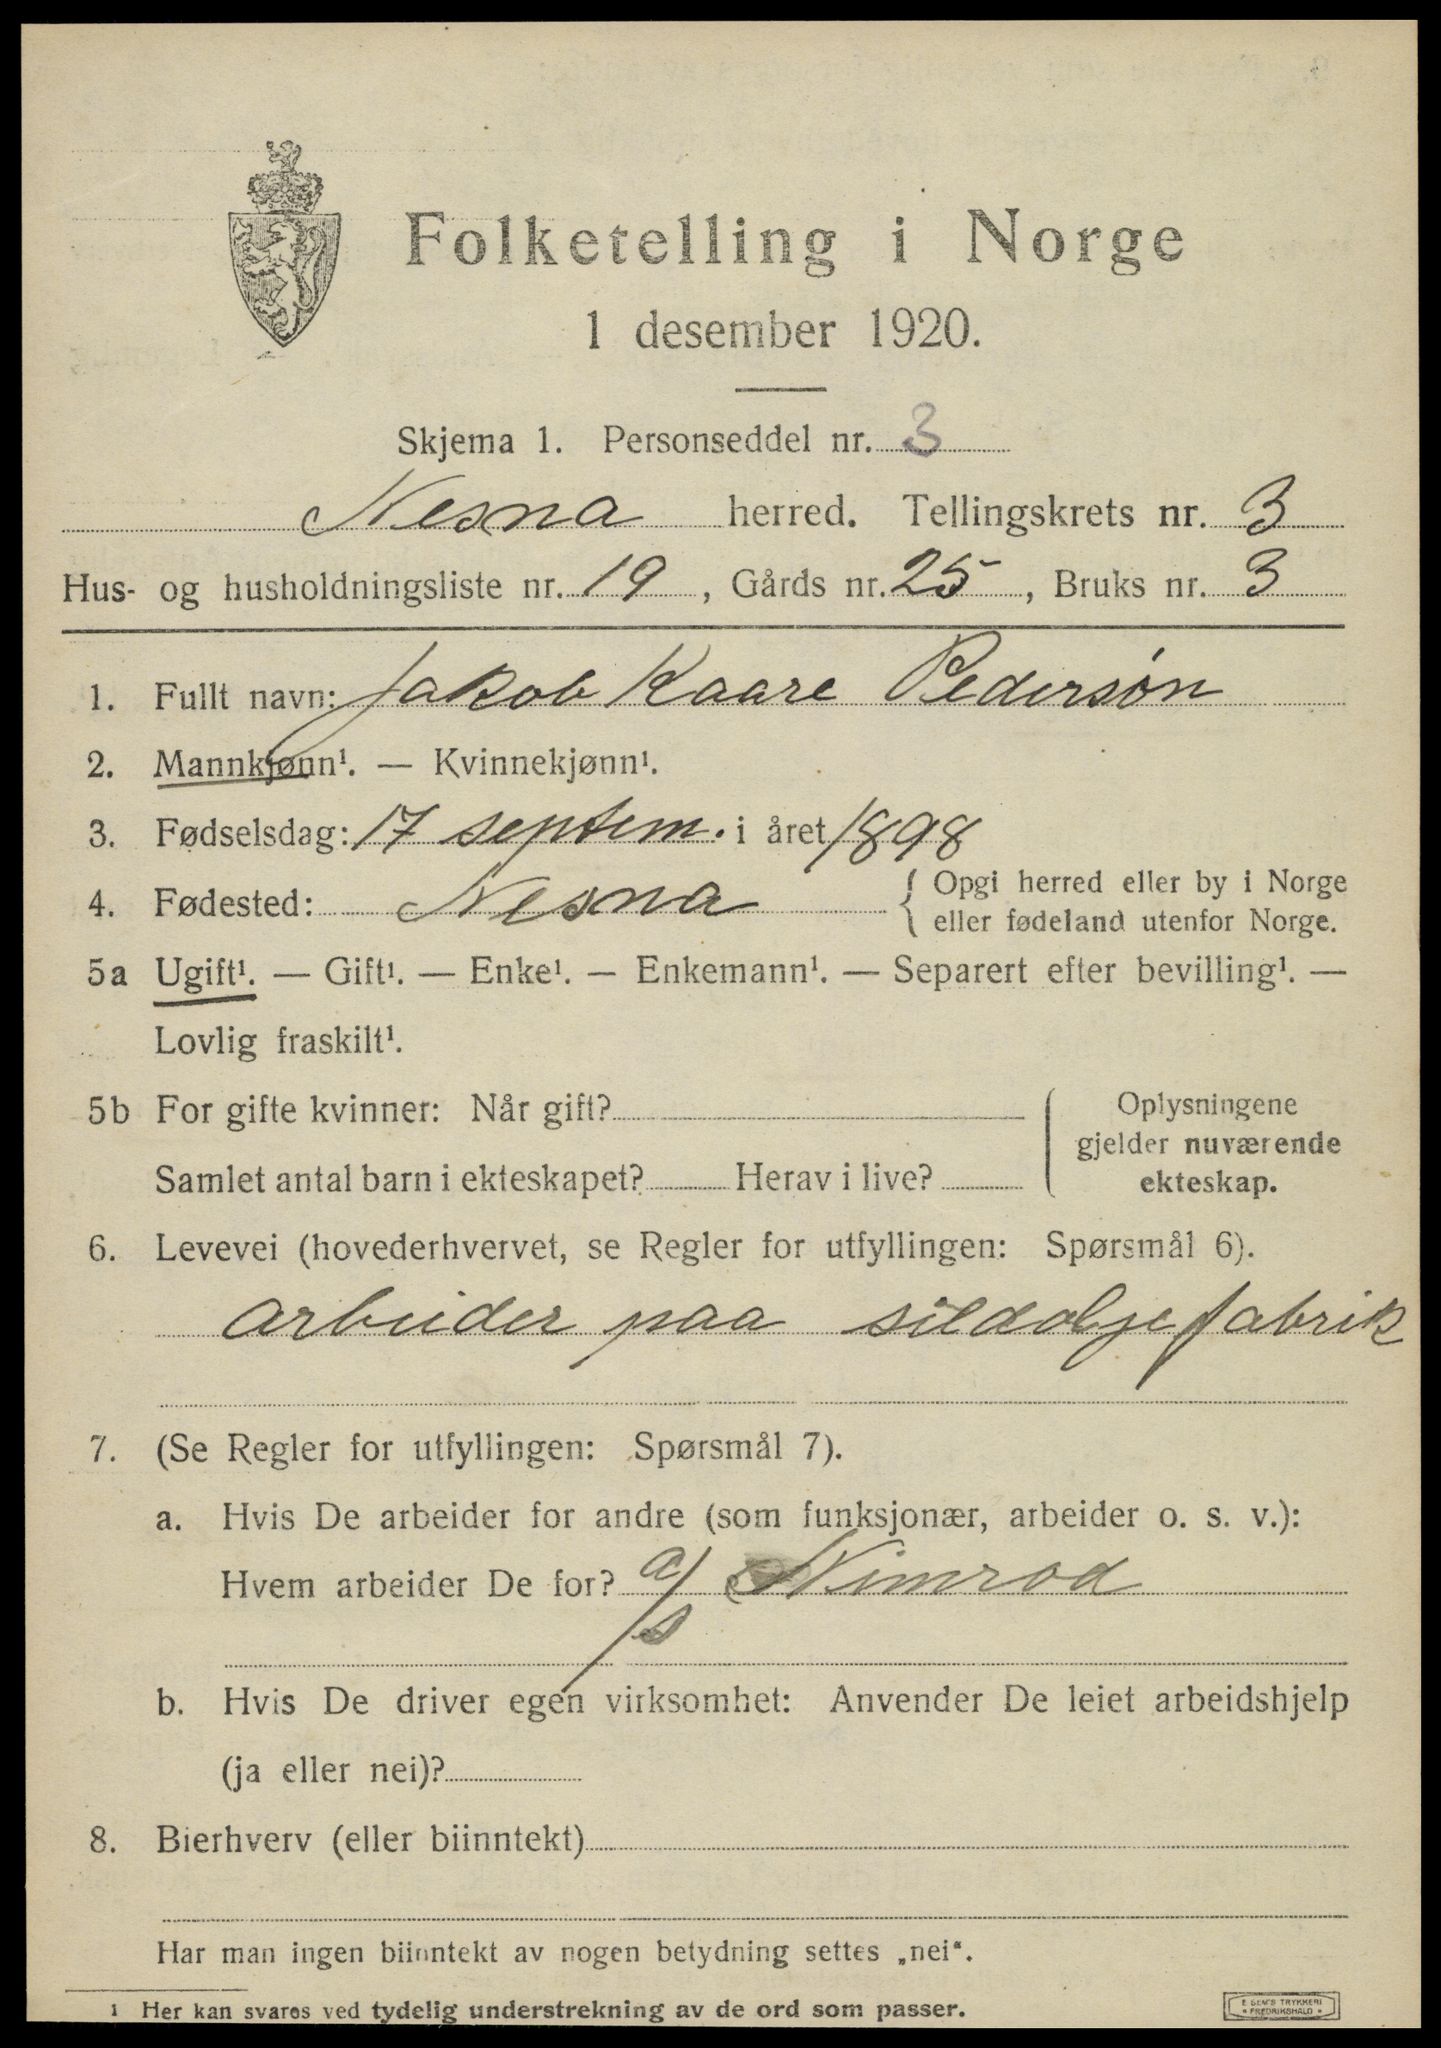 Folketelling i Norge
1 desember 1920.
Skjema 1. Personseddel nr. 3
Nesna herred. Tellingskrets nr. 3
Hus- og husholdningsliste nr. 19, Gårds nr. 25, Bruks nr. 3
1. Fullt navn: Jakob Kaare Pedersøn
2. Mannkjønn¹. — Kvinnekjønn¹.
3. Fødselsdag: 17 septem. i året 1898
4. Fødested: Nesna { Opgi herred eller by i Norge
eller fødeland utenfor Norge.
5a Ugift¹. — Gift¹. — Enke¹. — Enkemann¹. — Separert efter bevilling¹. —
Lovlig fraskilt¹.
5b For gifte kvinner: Når gift?
Samlet antal barn i ekteskapet? Herav i live?
Oplysningene
gjelder nuværende
ekteskap.
6. Levevei (hovederhvervet, se Regler for utfyllingen: Spørsmål 6).
arbeider paa sildoljefabrik
7. (Se Regler for utfyllingen: Spørsmål 7).
a. Hvis De arbeider for andre (som funksjonær, arbeider o. s. v.):
Hvem arbeider De for? a/s Nimrod
b. Hvis De driver egen virksomhet: Anvender De leiet arbeidshjelp
(ja eller nei)?
8. Bierhverv (eller biinntekt)
Har man ingen biinntekt av nogen betydning settes „nei“.
1 Her kan svares ved tydelig understrekning av de ord som passer.
E SEM'S TRYKKERI
* FREDRIKSHALD *